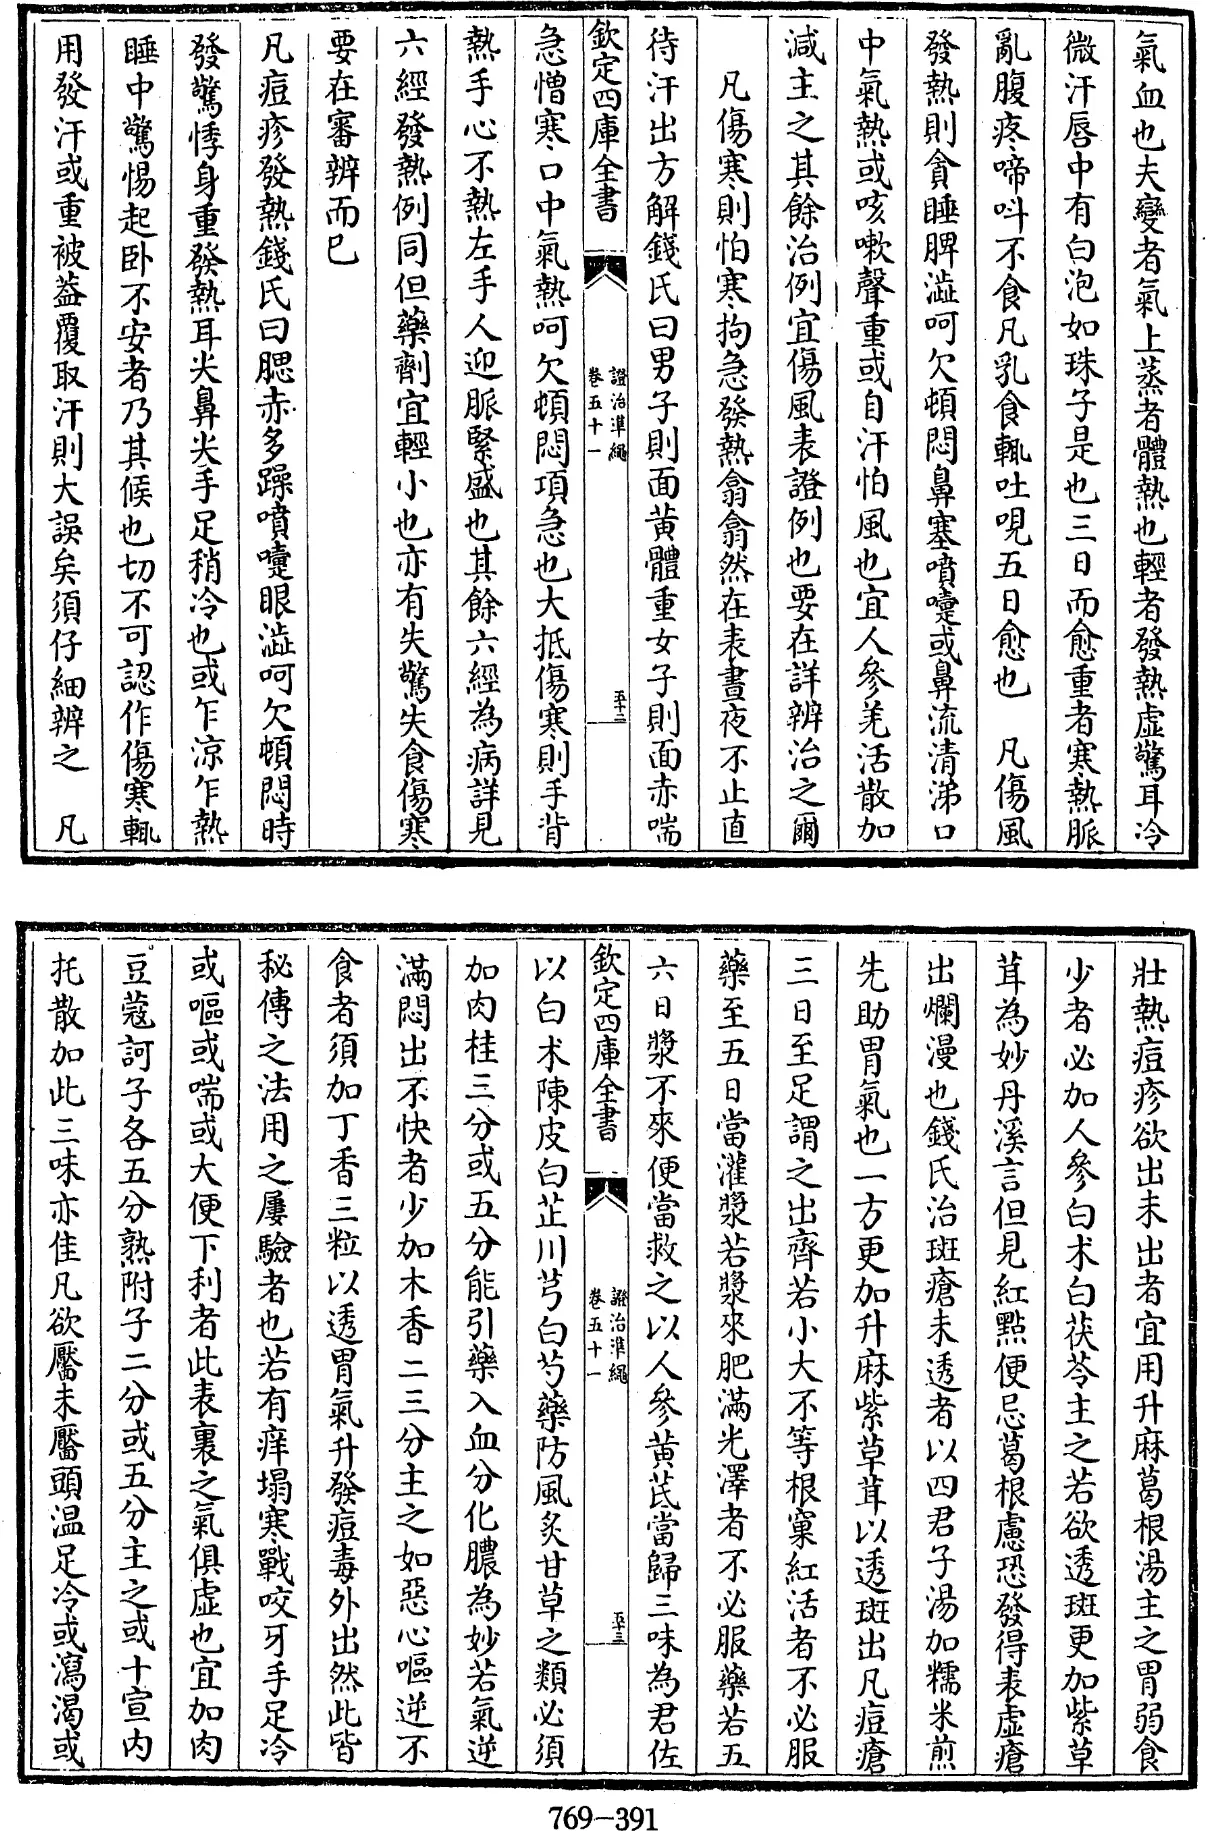 氣血也夫變者氣上蒸者體熱也輕者發熱虛驚耳冷
微汗唇中有白泡如珠子是也三日而愈重者寒熱脈
亂腹疼啼呌不食凡乳食輒吐哯五日愈也　凡傷風
發熱則貪睡脾澁呵欠頓悶鼻塞噴嚏或鼻流清涕口
中氣熱或咳嗽聲重或自汗怕風也宜人參羌活散加
減主之其餘治例宜傷風表證例也要在詳辨治之爾
凡傷寒則怕寒拘急發熱翕翕然在表晝夜不止直
待汗出方解錢氏曰男子則面黃體重女子則面赤喘
欽定四庫全書
證治準繩
卷五十一
五十二
急憎寒口中氣熱呵欠頓悶項急也大抵傷寒則手背
熱手心不熱左手人迎脈緊盛也其餘六經為病詳見
六經發熱例同但藥劑宜輕小也亦有失驚失食傷寒
要在審辨而已
凡痘疹發熱錢氏曰腮赤多躁噴嚏眼澁呵欠頓悶時
發驚悸身重發熱耳尖鼻尖手足稍冷也或乍涼乍熱
睡中驚惕起卧不安者乃其候也切不可認作傷寒輒
用發汗或重被葢覆取汗則大誤矣須仔細辨之　凡
壯熱痘疹欲出未出者宜用升麻葛根湯主之胃弱食
少者必加人參白术白茯苓主之若欲透斑更加紫草
茸為妙丹溪言但見紅點便忌葛根慮恐發得表虛瘡
出爛漫也錢氏治斑瘡未透者以四君子湯加糯米煎
先助胃氣也一方更加升麻紫草茸以透斑出凡痘瘡
三日至足謂之出齊若小大不等根窠紅活者不必服
藥至五日當灌漿若漿來肥滿光澤者不必服藥若五
六日漿不來便當救之以人參黃芪當歸三味為君佐
欽定四庫全書
證治準繩
卷五十一
五十三
以白术陳皮白芷川芎白芍藥防風炙甘草之類必須
加肉桂三分或五分能引藥入血分化膿為妙若氣逆
滿悶出不快者少加木香二三分主之如惡心嘔逆不
食者須加丁香三粒以透胃氣升發痘毒外出然此皆
秘傳之法用之屢驗者也若有痒塌寒戰咬牙手足冷
或嘔或喘或大便下利者此表裏之氣俱虛也宜加肉
豆蔻訶子各五分熟附子二分或五分主之或十宣內
托散加此三味亦佳凡欲靨未靨頭温足冷或瀉渴或
769-391